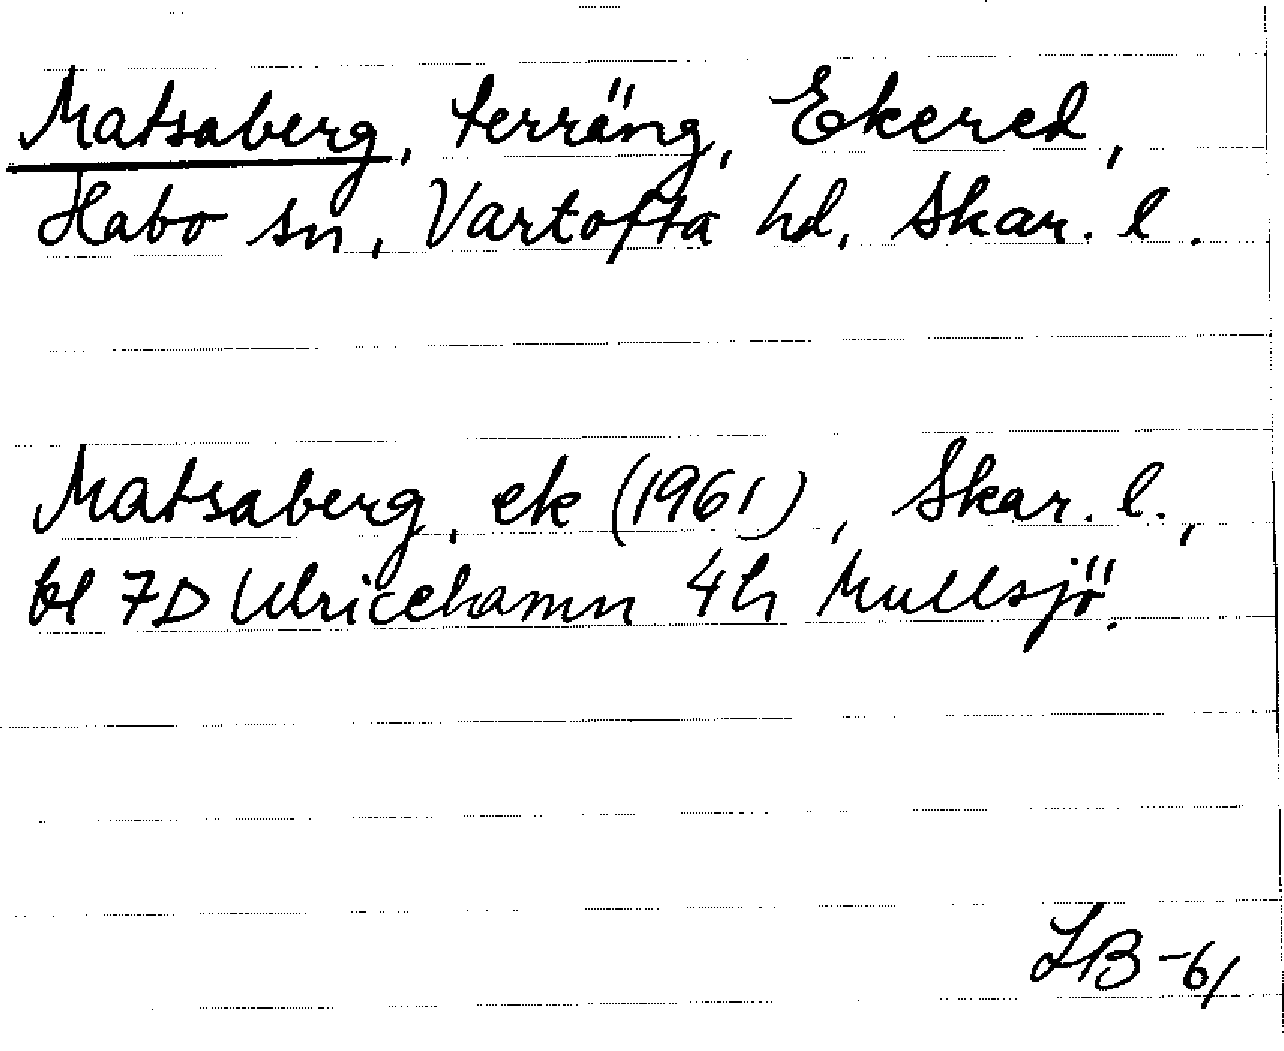 Matsaberg, terräng, Ekered,
Habo sn, Vartofta hd, Skar. l.
Matsaberg, ek (1961), Skar. l.,
bl 7D Ulricehamn 4h Mullsjö.
LB-61